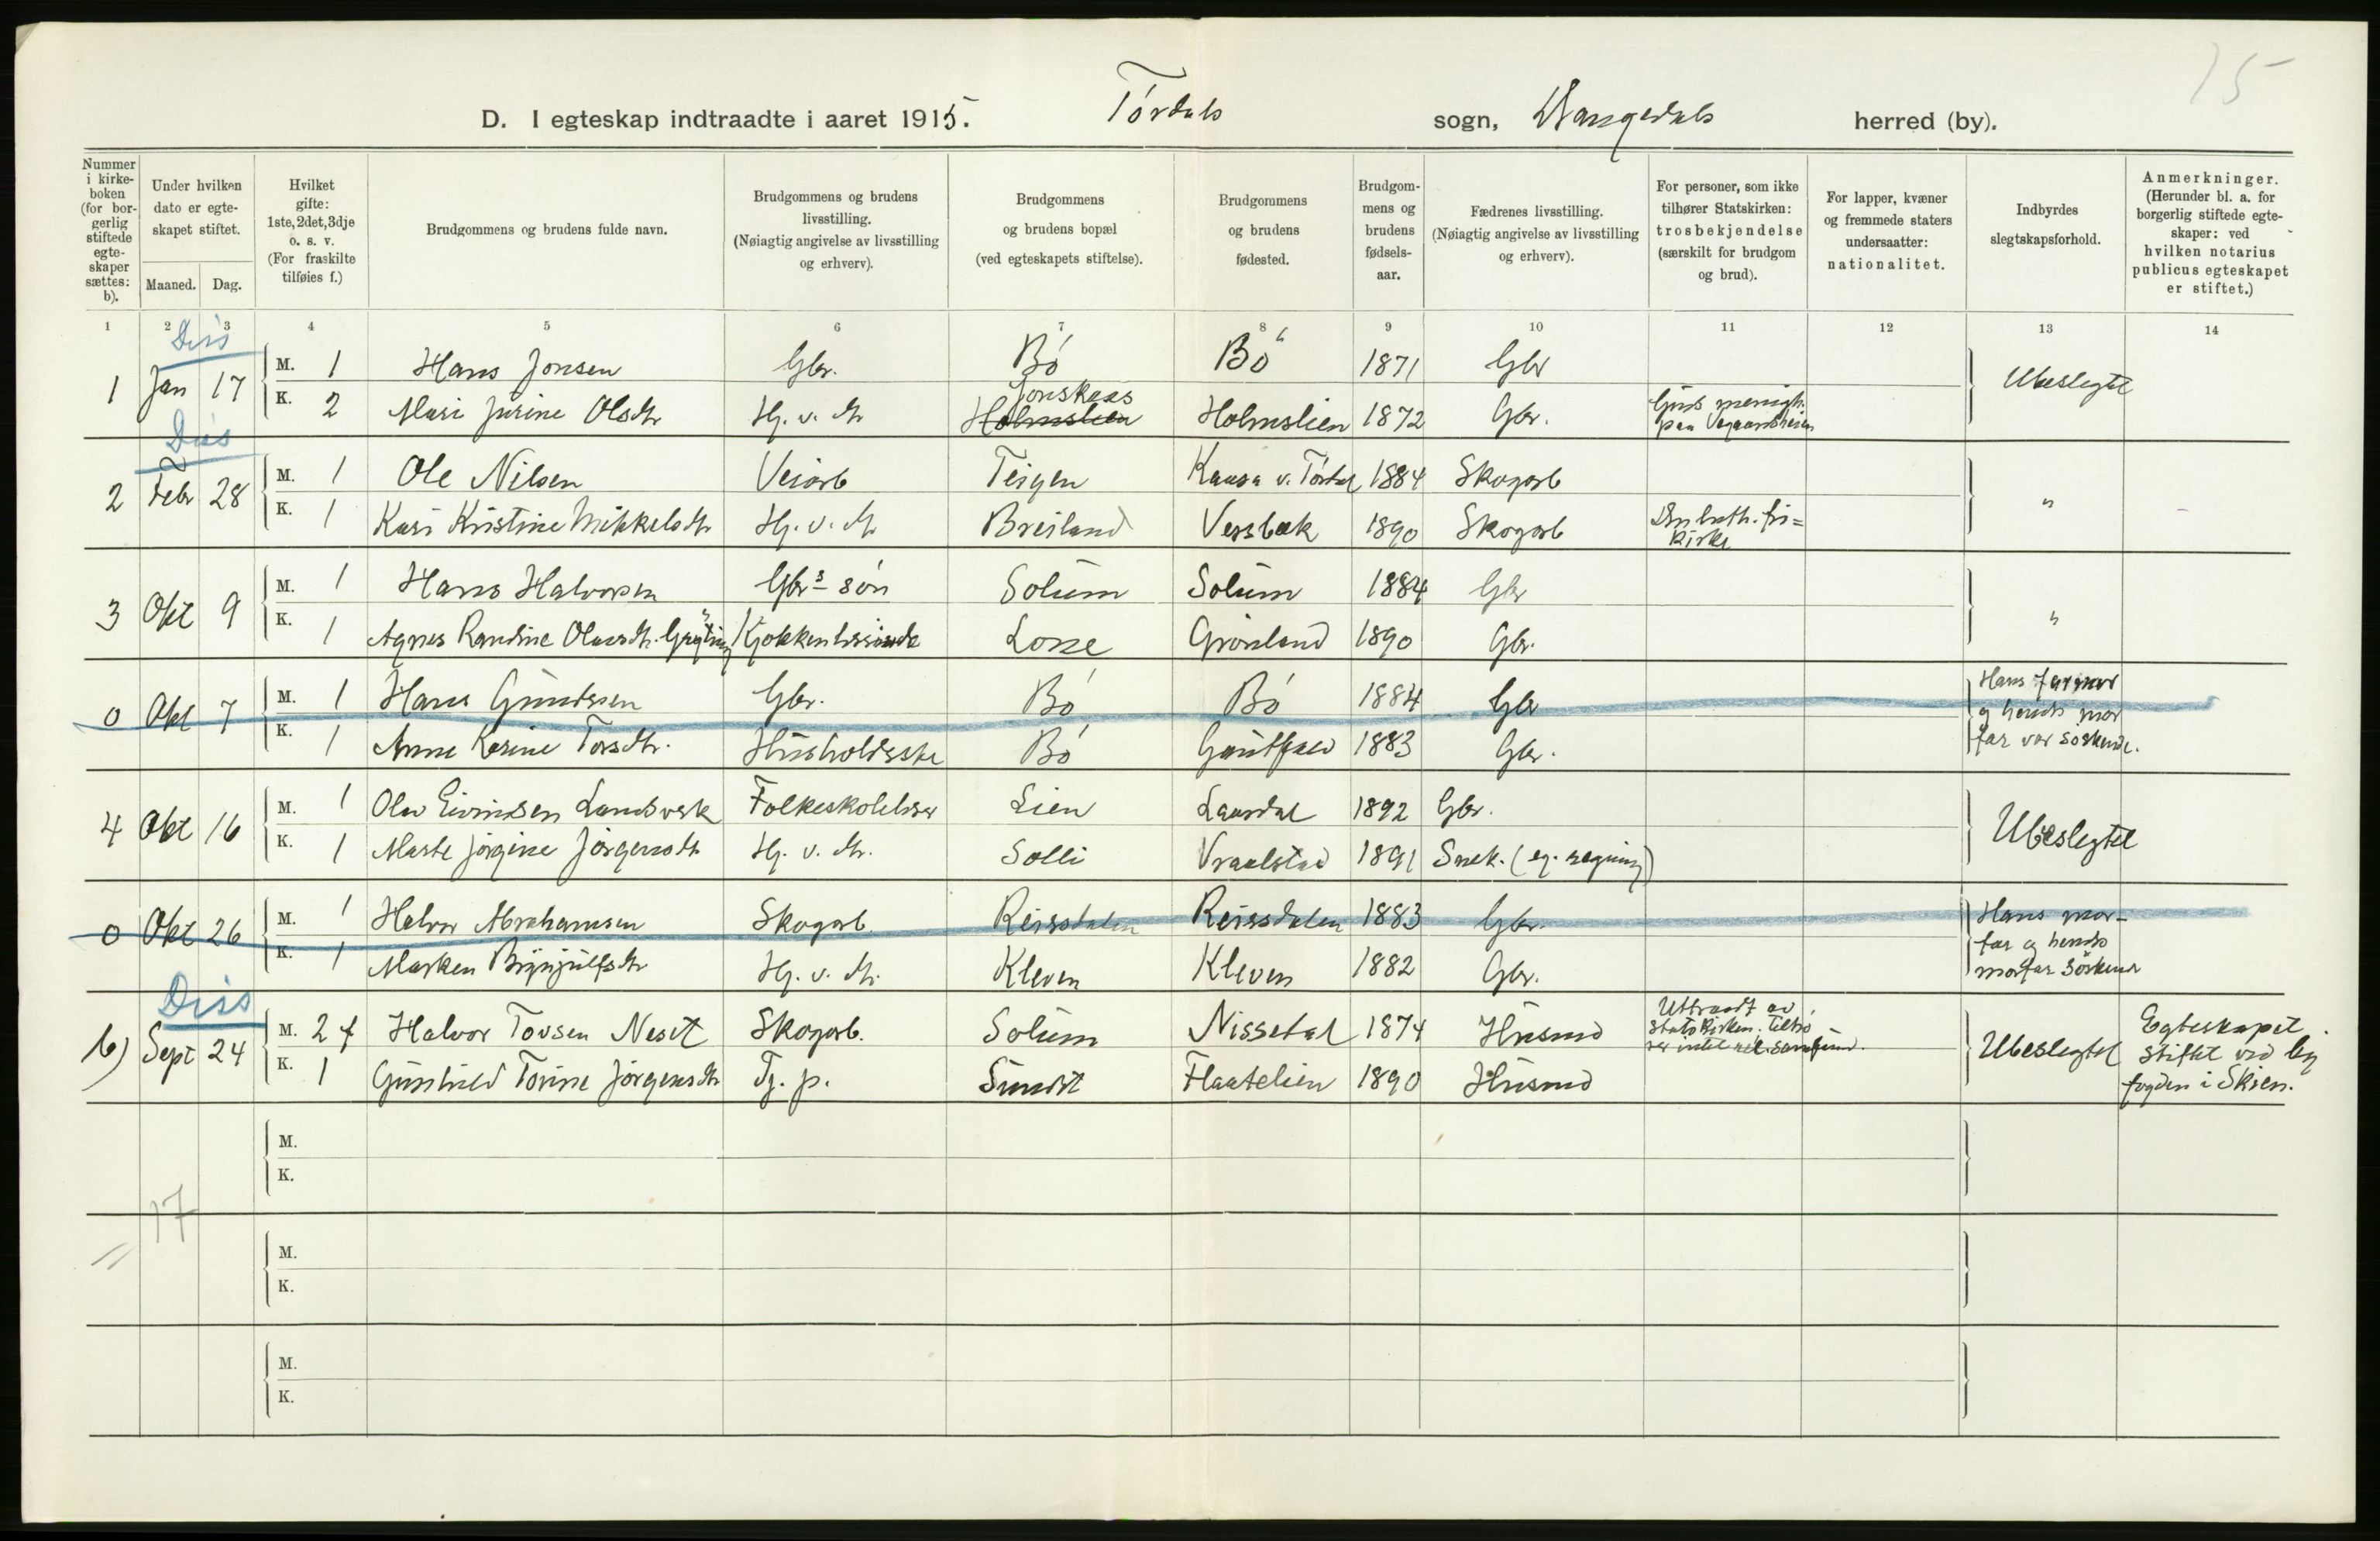 15
D. I egteskap indtraadte i aaret 1915. Tórdals sogn, Drangedals herred (by).
Nummer i kirkeboken (for borgerlig stiftede egteskaper sættes: b).
Under hvilken dato er egteskapet stiftet.
Maaned. Dag.
Hvilket gifte: 1ste, 2det, 3dje o. s. v. (For fraskilte tilføies f.)
Brudgommens og brudens fulde navn.
Brudgommens og brudens livsstilling. (Nøiagtig angivelse av livsstilling og erhverv).
Brudgommens og brudens bopæl (ved egteskapets stiftelse).
Brudgommens og brudens fødested.
Brudgommens og brudens fødselsaar.
Fædrenes livsstilling. (Nøiagtig angivelse av livsstilling og erhverv).
For personer, som ikke tilhører Statskirken: trosbekjendelse (særskilt for brudgom og brud).
For lapper, kvæner og fremmede staters undersaatter: nationalitet.
Indbyrdes slegtskapsforhold.
Anmerkninger. (Herunder bl. a. for borgerlig stiftede egteskaper: ved hvilken notarius publicus egteskapet er stiftet.)
1 2 3 4 5 6 7 8 9 10 11 12 13 14
Diss
1 Jan 17 M. 1 Hans Jonsen Gbr. Bó Bó 1871 Gbr Ubeslegtet
K. 2 Mari Jurine Olsdtr Hj. v. M Holmslien Jonskaas Holmslien 1872 Gbr. Guds menigh. paa Vegaardsheien
Diss
2 Febr 28 M. 1 Ole Nilsen Veiarb Teigen Kaasa v. Tórdal 1884 Skogarb "
K. 1 Kari Kristine Mikkelsdtr Hj. v. M Breiland Vessbæk 1890 Skogarb Ev. luth. fri= kirke
3 Okt 9 M. 1 Hans Halvorsen Gbrs són Solum Solum 1884 Gbr "
K. 1 Agnes Randine Olavsdtr. Kjøkkenbestyrerinde Grónland 1890 Gbr.
0 Okt 7 M. 1 Hans Gundersen Gbr. Bó Bó 1884 Gbr Hans farmor og hends mor far var sóskende.
K. 1 Anne Karine Torsdtr. Husholdsske Bó Gautefald 1883 Gbr.
4 Okt 16 M. 1 Olav Eivindsen Landsverk Folkeskolelærer Lien Laardal 1892 Gbr. Ubeslegtet
K. 1 Marte Jórgine Jórgensdtr Hj. v. M. Solli Vraalstad 1891 Snek. (eg. regning)
0 Okt 26 M. 1 Halvor Abrahamsen Skogarb. Reirsdalen Reirsdalen 1883 Gbr. Hans mor-far og hends morfar Sóskend
K. 1 Marken Brynjulfsdtr Hj. v. M. Kleven Kleven 1882 Gbr.
Diss
b) Sept 24 M. 2 f Halvor Tovsen Neset Skogarb. Solum Nissedal 1874 Husmd Uttraadt av statskirken. Tilhórer intet rel. samfund. Ubeslegtet Egteskapet stiftet ved byfogden i Skien.
K. 1 Gunhild Tovine Jórgensdtr Tj. p. Sundet Flaatelien 1890 Husmd
M.
K.
17
M.
K.
M.
K.